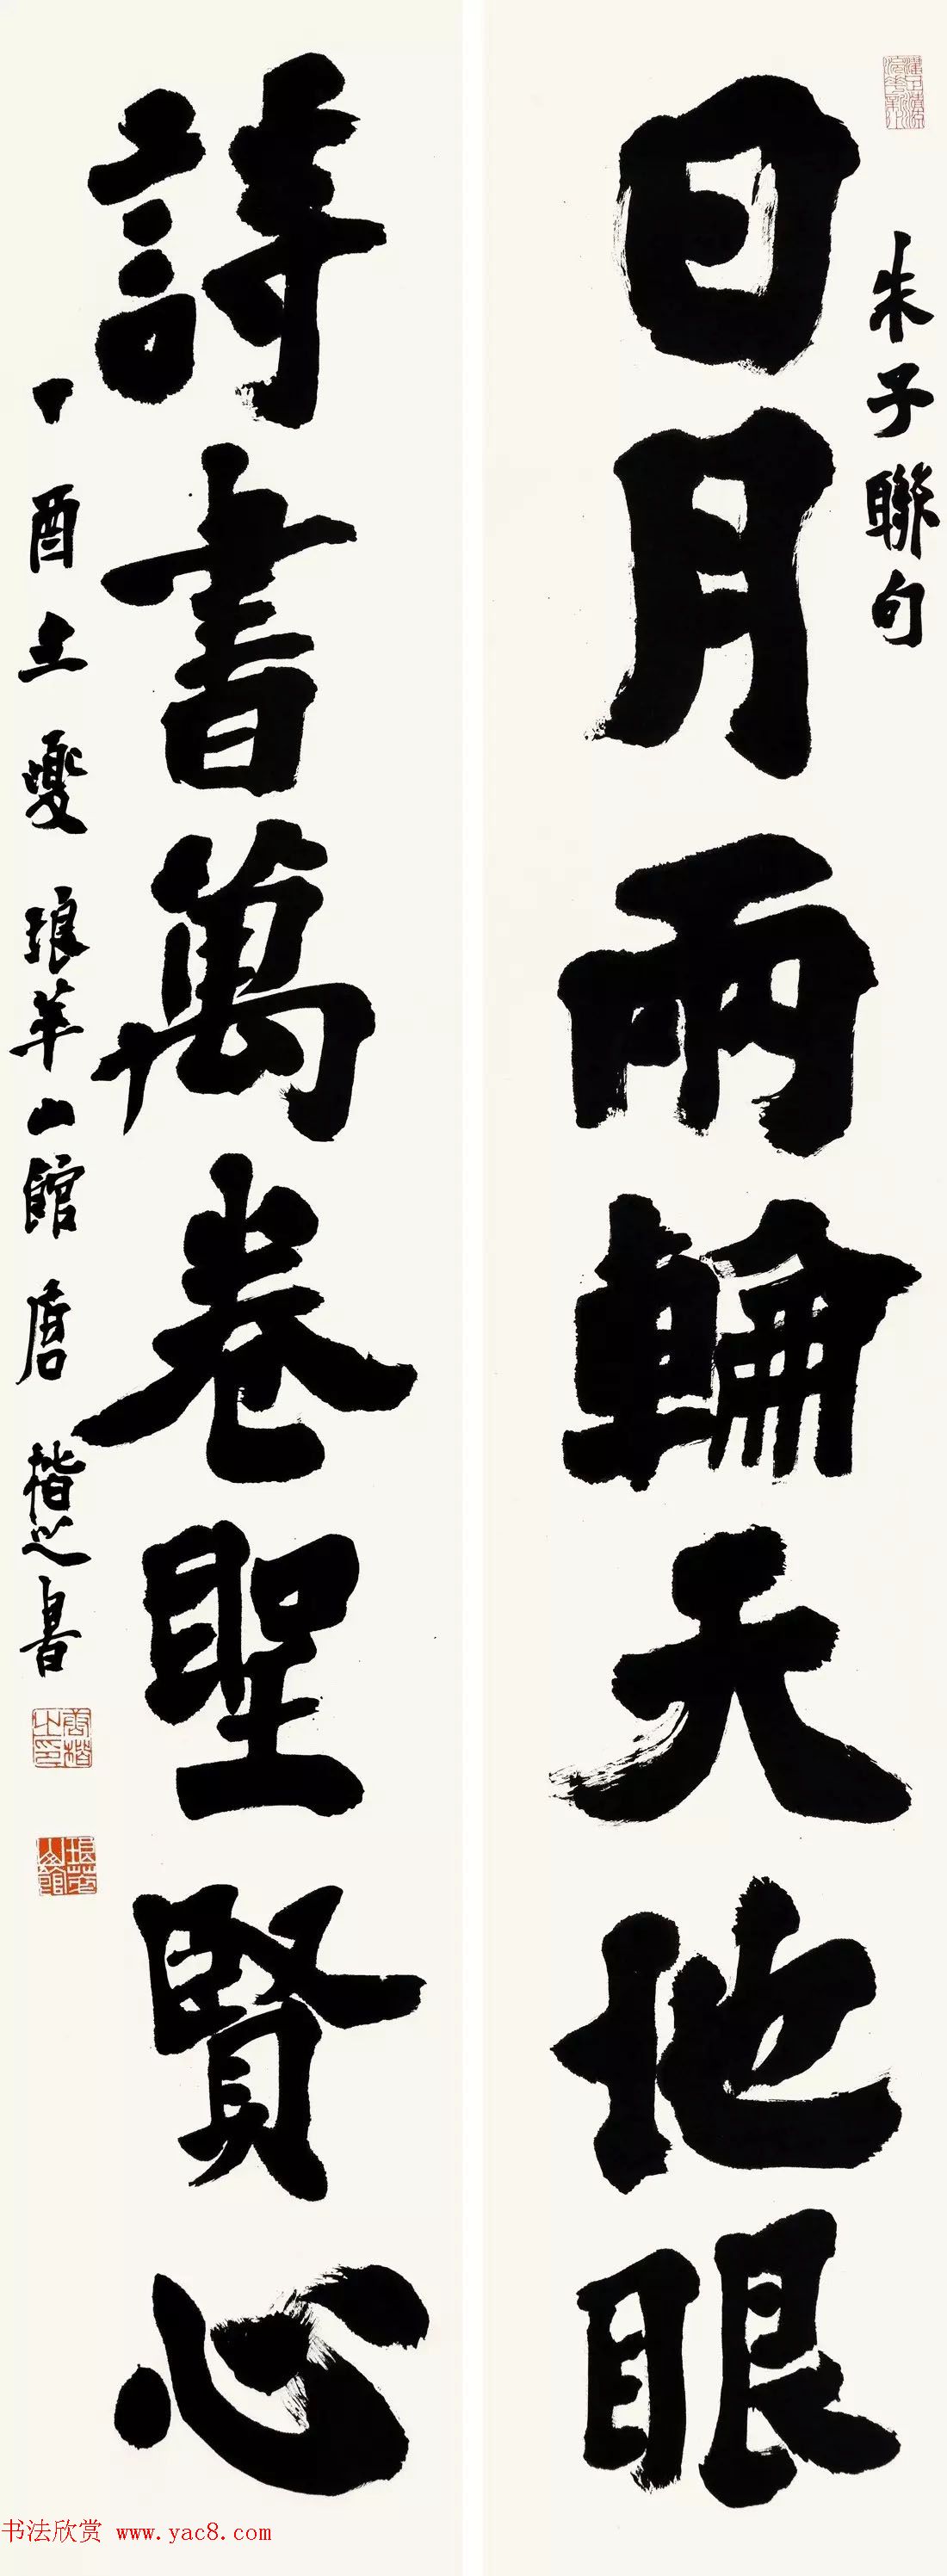 朱子聯句
日月兩輪天地眼
詩書萬卷聖賢心
丁酉之夏琅華山館唐楷之書
唐楷之印
书法欣赏 www.yac8.com